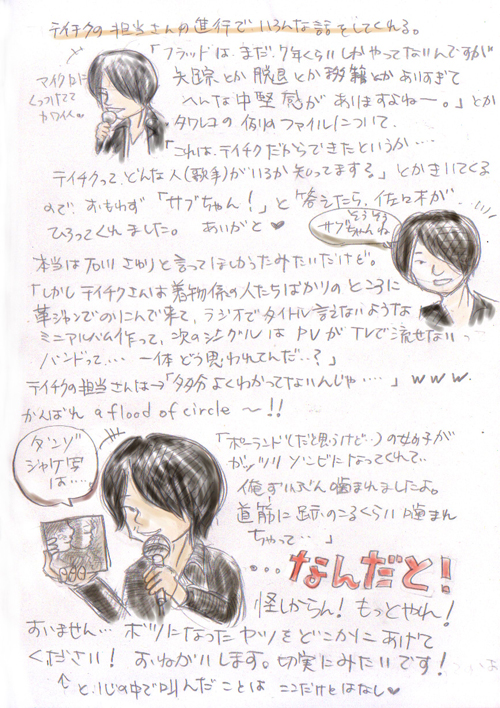 テイチクの担当さんの進行でいろんな話をしてくれる。
「フラッドは、まだ、7年くらいしかやってないんですが
マイクDに
くっつけてて
カワイイ。
失踪とか脱退とか移籍とかありすぎて
へんな中堅感がありますよねー。」とか
タワレコの例のファイルについて、
「これは、テイチクだからできたというか…
テイチクって、どんな人(歌手)がいるか知ってます?」とかきいてくる
ので、おもわず「サブちゃん!」と答えたら、佐々木が
ひろってくれました。ありがと♥
そうそう
サブちゃんね
本当は石川さゆりと言ってほしかったみたいだけど。
「しかしテイチクさんは着物係の人たちばかりのところに
革ジャンでのりこんで来て、ラジオでタイトル言えないような
ミニアルバム作って、次のシングルはPVがTVで流せないっ
バンドって…一体どう思われてんだ‥?」
テイチクの担当さんは→「多分よくわかってないんじゃ‥‥」www.
がんばれ a flood of circle ～!!
ダンゾ
ジャケ写
は‥‥。
「ポーランド(だと思うけど‥)の女の子が
ガッツリゾンビになってくれて、
俺ずいぶん噛まれましたよ。
首筋に跡のこるくらい噛まれ
ちゃって‥」
…なんだと!
怪しからん!もっとやれ!
すいません…ボツになったヤツをどこかにあげて
ください!おねがいします。切実にみたいです!
↑と、心の中で叫んだことはココだけのはなし♥